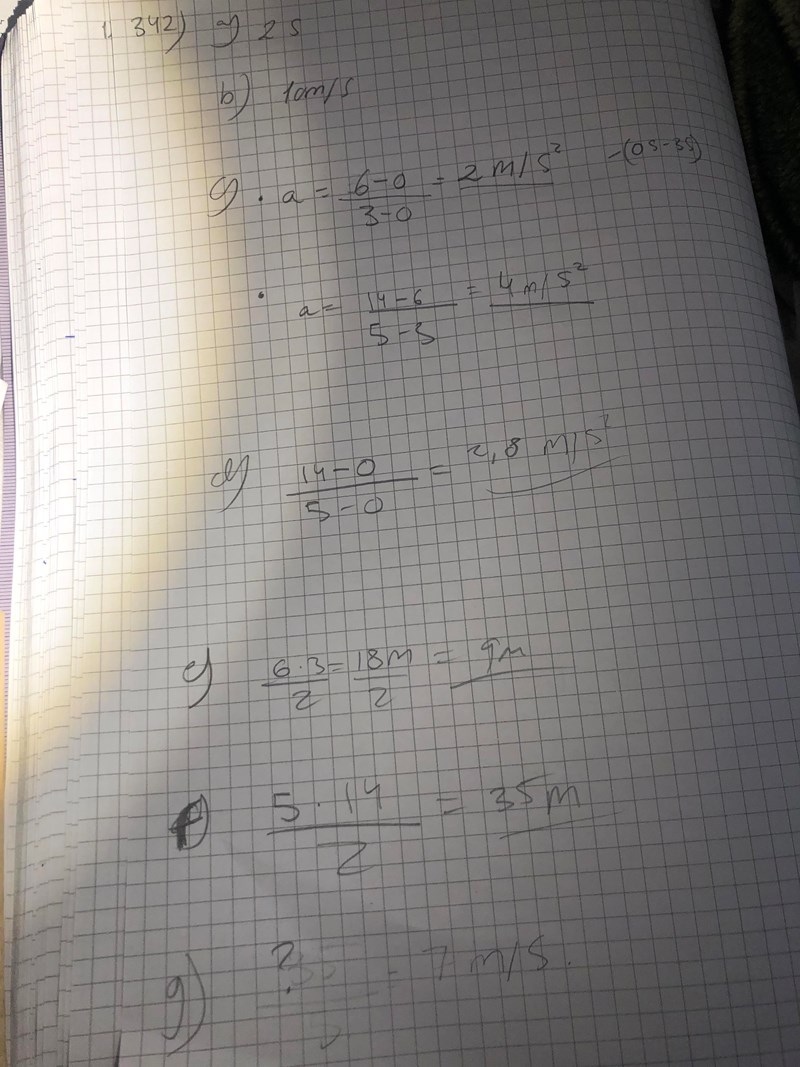 1. 342) a) 2 s
b) 10 m/s
c) · a = 6-0 / 3-0 = 2 m/s² -(0s-3s)
· a = 14-6 / 5-3 = 4 m/s²
d) 14-0 / 5-0 = 2,8 m/s²
e) 6·3 / 2 = 18m / 2 = 9m
f) 5·14 / 2 = 35 m
g) ? = 7 m/s.